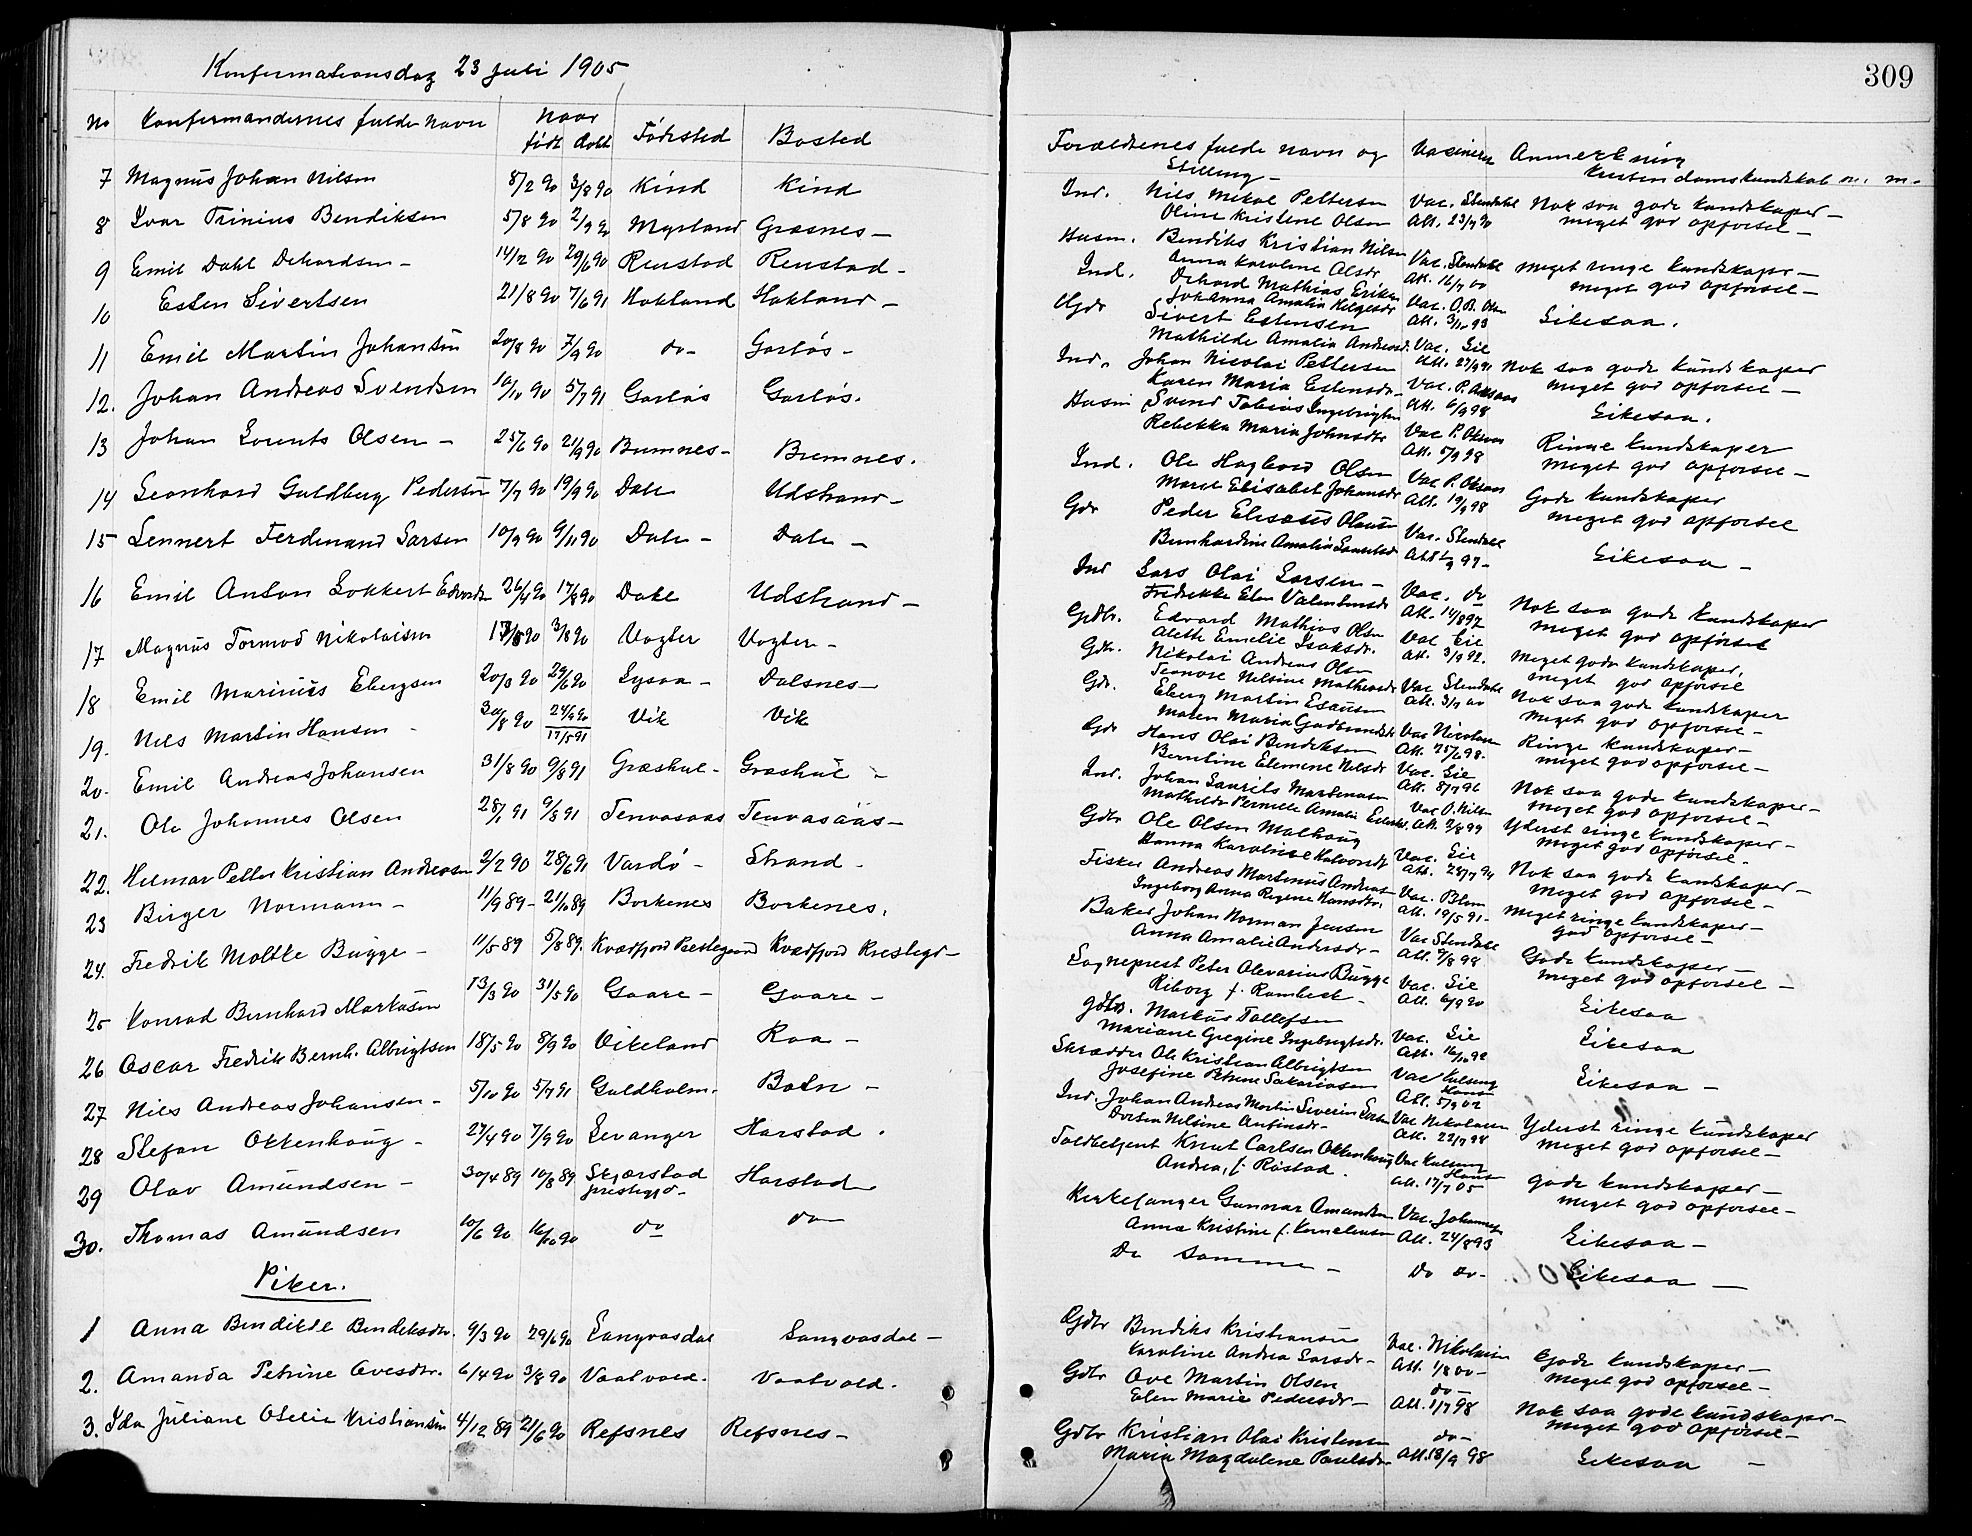 309
Konfirmationsdag 23 juli 1905
No Konfirmandernes fulde navn Naar født døbt Fødested Bosted
7 Magnus Johan Nilsen 8/2 90 3/8 90 Kind Kind
8 Ivar Trinius Bendiksen 5/8 90 2/9 90 Myrland Græsnes –
9 Emil Dahl – 14/2 90 29/6 90 Renstad Renstad –
10 Esten Sivertsen 21/8 90 7/6 91 Hokland Hokland –
11 Emil Martin Johansen 20/8 90 7/9 90 do – Gorløs –
12. Johan Andreas Svendsen 10/10 90 5/7 91 Gorløs Gorløs.
13 Johan Lorents Olsen – 25/6 90 21/9 90 Bremnes – Bremnes.
14 Leonhard Guldberg Pedersen 7/7 90 19/9 90 Dale Udstrand –
15 Lennert Ferdinand Larsen 10/9 90 9/11 90 Dale – Dale –
16 Emil Anton Lokkert Edvardsen 26/4 90 17/8 90 Dale Udstrand –
17 Magnus Tormod Nikolaisen 90 3/8 90 Vogter Vogter –
18 Emil Marinius Ebergsen 20/3 90 29/6 90 Lysaa – Dalsnes –
19. Nils Martin Hansen – 30/8 90 24/9 90 17/5 91 Vik Vik
20. Emil Andreas Johansen 31/8 90 9/8 91 Græshul – Græshul –
21. Ole Johannes Olsen 28/1 91 9/8 91 Tenvasaas Tenvasaas –
22. Hilmar Petter Kristian Andreassen 2/2 90 28/6 91 Vardø – Strand –
23 Birger Normann – 11/9 89 – 21/11 89 Borkenes Borkenes.
24. Fredrik Moltke Bugge – 11/5 89 5/8 89. Kvædfjord Prestegaard Kvædfjord Prestegd –
25 Konrad Bernhard Markusen 13/3 90 31/5 90 Gaare – Gaare –
26 Oscar Fredrik Bernh. Albrigtsen 18/5 90 8/9 90 Vikeland Raa –
27 Nils Andreas Johansen – 5/10 90 5/7 91 Guldholm. Botn –
28 Stefan Okkenhaug – 27/4 90 7/9 90 Levanger Harstad.
29 Olav Amundsen – 30/4 89 10/8 89 Skjærstad prestegd – Harstad
30. Thomas Amundsen 10/6 90 16/10 90 do do –
Piker.
1 Anna Bendikte Bendiksdtr. 9/3 90 29/6 90 Langvasdal Langvasdal –
2. Amanda Petrine Ovesdtr. 6/4 90 3/8 90 Vaatvold. Vaatvold.
3. Ida Juliane Otelie Kristiansen 4/12 89 21/6 90 Refsnes Refsnes –
Forældrenes fulde navn og Stilling – Anmerkning Kristendomskundskab m. m.
Ind. Nils Mikal Pettersen Vac. Stendahl Nok saa gode kundskaper –
Oline Kristine Olsen Att. 23/9 90 meget god opførsel –
Husm. Bendiks Kristian Nilsen Vac. Stendahl meget ringe kundskaper –
Anna Karoline Olsdr Att. 16/7 00 meget god opførsel –
Ind. Mathias Eriksen Vac. O.B. Olsen Likesaa.
Johanna Amalia Helgesdr Att. 3/11 93
Gdr Sivert Estensen Vac. Lie Nok saa gode kundskaper
Mathilde Amalia Andreasd. Att. 27/9 91 meget god opførsel –
Ind. Johan Nicolai Pettersen Vac. P. Likesaa.
Karen Maria Estensdr. Att. 6/9 98
Husm Svend Tobias Ingebrigtsen Vac P. Ringe kundskaper
Rebekka Maria Johnsdtr Att. 5/9 98 meget god opførsel –
Ind. Ole Hagbard Olsen Vac P. Gode kundskaper
Maret Elisabet Johansdr Att. 19/9 98 meget god opførsel
Gdr Peder Elisæus Olausen Vac. Stendahl Likesaa –
Bernhardine Amalia Att 97 –
Ind Lars Olai Larsen – Vac. do Nok saa gode kundskaper
Fredrikke Elen Valentinsdr Att. 14/8 97 meget god opførsel
Gdbr. Edvard Mathias Olsen Vac Lie Meget gode kundskaper,
Aleth Emelie Isaksdr. Att. 3/9 92. meget god opførsel
Gdr. Nikolai Andreas Olsen Vac Stendahl Nok saa gode kundskaper
Leonore Nelsine Mathiasdr Att. 3/7 00 meget god opførsel –
Gdr. Eberg Martin Esausen Vac Nicolaisen Ringe kundskaper –
Maren Maria Gudbrandsdr Att. 25/6 98. meget god opførsel –
Gdr Hans Olai Bendiksen Vac. Lie Nok saa gode kundskaper –
Berntine Elemene Nilsdr Att. 8/7 96 meget god opførsel –
Ind. Johan Laurits Martinusen Vac O. Nilsen Yderst ringe kundskaper –
Mathilde Pernille Amalie Att. 2/8 99 meget god opførsel –
Gdbr Ole Olsen Malhaug Vac. Lie Nok saa gode kundskaper –
Hanna Karoline Halvorsdt Att. 28/7 94 meget god opførsel –
Fisker Andreas Martinus Andreas Vac. Blom meget ringe kundskaper –
Ingeborg Anna Regine Hansdtr. Att. 19/5 91 – god opførsel –
Baker Johan Norman Jensen Vac Stendahl Gode kundskaper –
Anna Amalie Andersdr – Att. 9/8 98 meget god opførsel –
Sogneprest Peter Olevarius Bugge Vac. Lie Likesaa
Riborg f. Rambeck – Att. 6/9 90
Gdbr. Markus Tollefsen Vac. Lie Likesaa
Mariane Gregine Ingebrigtsdr. Att. 16/10 92
Skrædder Ole Kristian Albrigtsen Vac Kulseng Hans Likesaa –
Josefine Petrine Sakariasen Att. 5/9 02
Ind. Johan Andreas Martin Severin Vac Nikolaisen Yderst ringe kundskaper
Dortea Nilsine Anfinsdr – Att. 22/7 98 meget god opførsel –
Toldbetjent Knut Carlsen Okkenhaug Vac Kulseng Hans gode kundskaper –
Andrea, f. Røstad. Att. 17/7 05 meget god opførsel –
Kirkesanger Gunnar Amundsen Vac. Johannes Likesaa –
Anna Kristine f. Kornelensen Att. 24/8 93
De samme – Do do – Likesaa –
Gdbr Bendiks Kristiansen Vac. Nikolaisen Gode kundskaper –
Karoline Andrea Larsdr – Att. 1/8 00 – meget god opførsel –
Gdbr Ove Martin Olsen do – Nok saa gode kundskaper –
Elen Marie Pedersdr – Att. 1/7 98 meget god opførsel –
Gdbr Kristian Olai Kristensen do – Likesaa –
Maria Magdalene Paulsdr Att. 18/9 98